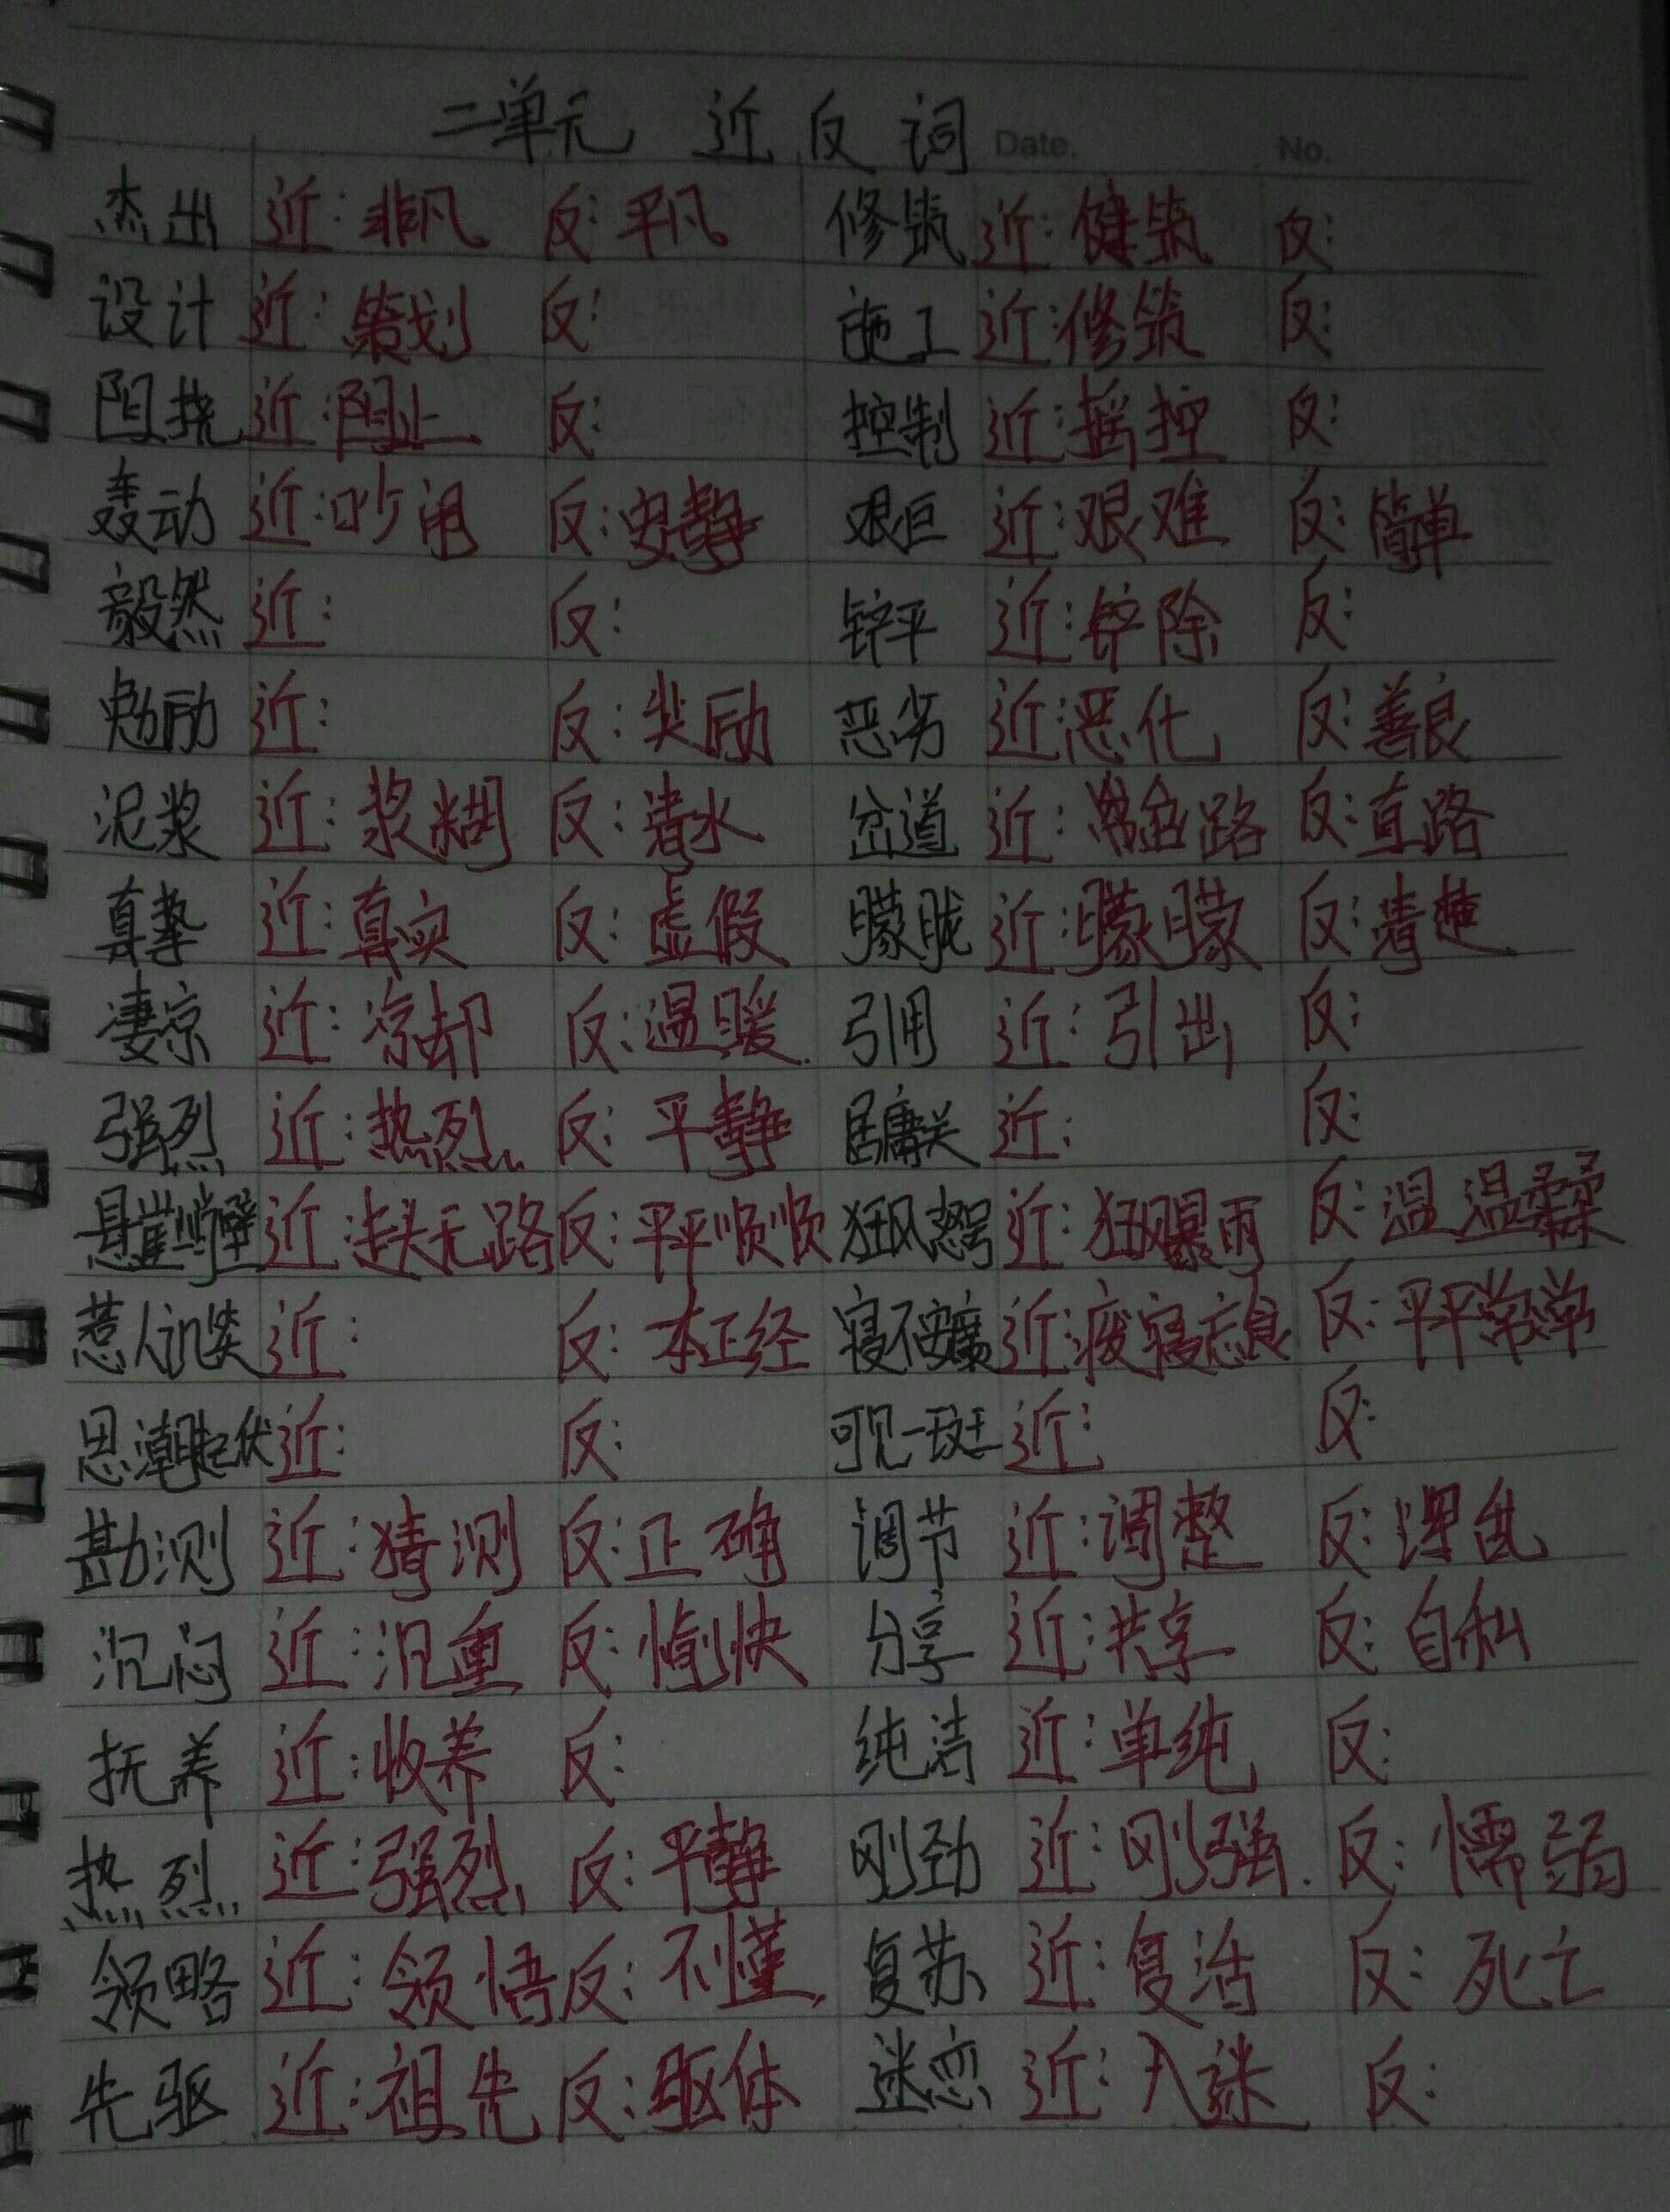 二单元 近反词 Date. No.
杰出 近:非凡 反:平凡 修筑 近:健筑 反:
设计 近:策划 反: 施工 近:修筑 反:
阻挠 近:阻止 反: 控制 近:摇控 反:
轰动 近:吵闹 反:安静 艰巨 近:艰难 反:简单
毅然 近: 反: 铲平 近:铲除 反:
勉励 近: 反:奖励 恶劣 近:恶化 反:善良
泥浆 近:浆糊 反:清水 岔道 近: 路 反:直路
真挚 近:真实 反:虚假 朦胧 近:朦朦 反:清楚
凄凉 近:凉却 反:温暖 引用 近:引出 反:
强烈 近:热烈 反:平静 居庸关 近: 反:
悬崖峭壁 近:走头无路 反:平平顺顺 狂风怒号 近:狂风暴雨 反:温温柔柔
惹人讥笑 近: 反:一本正经 寝不安席 近:废寝忘食 反:平平常常
思潮起伏 近: 反: 可见一斑 近: 反:
勘测 近:猜测 反:正确 调节 近:调整 反:混乱
沉闷 近:沉重 反:愉快 分享 近:共享 反:自私
抚养 近:收养 反: 纯洁 近:单纯 反:
热烈 近:强烈 反:平静 刚劲 近:刚强 反:懦弱
领略 近:领悟 反:不懂 复苏 近:复活 反:死亡
先驱 近:祖先 反:驱体 迷恋 近:入迷 反: